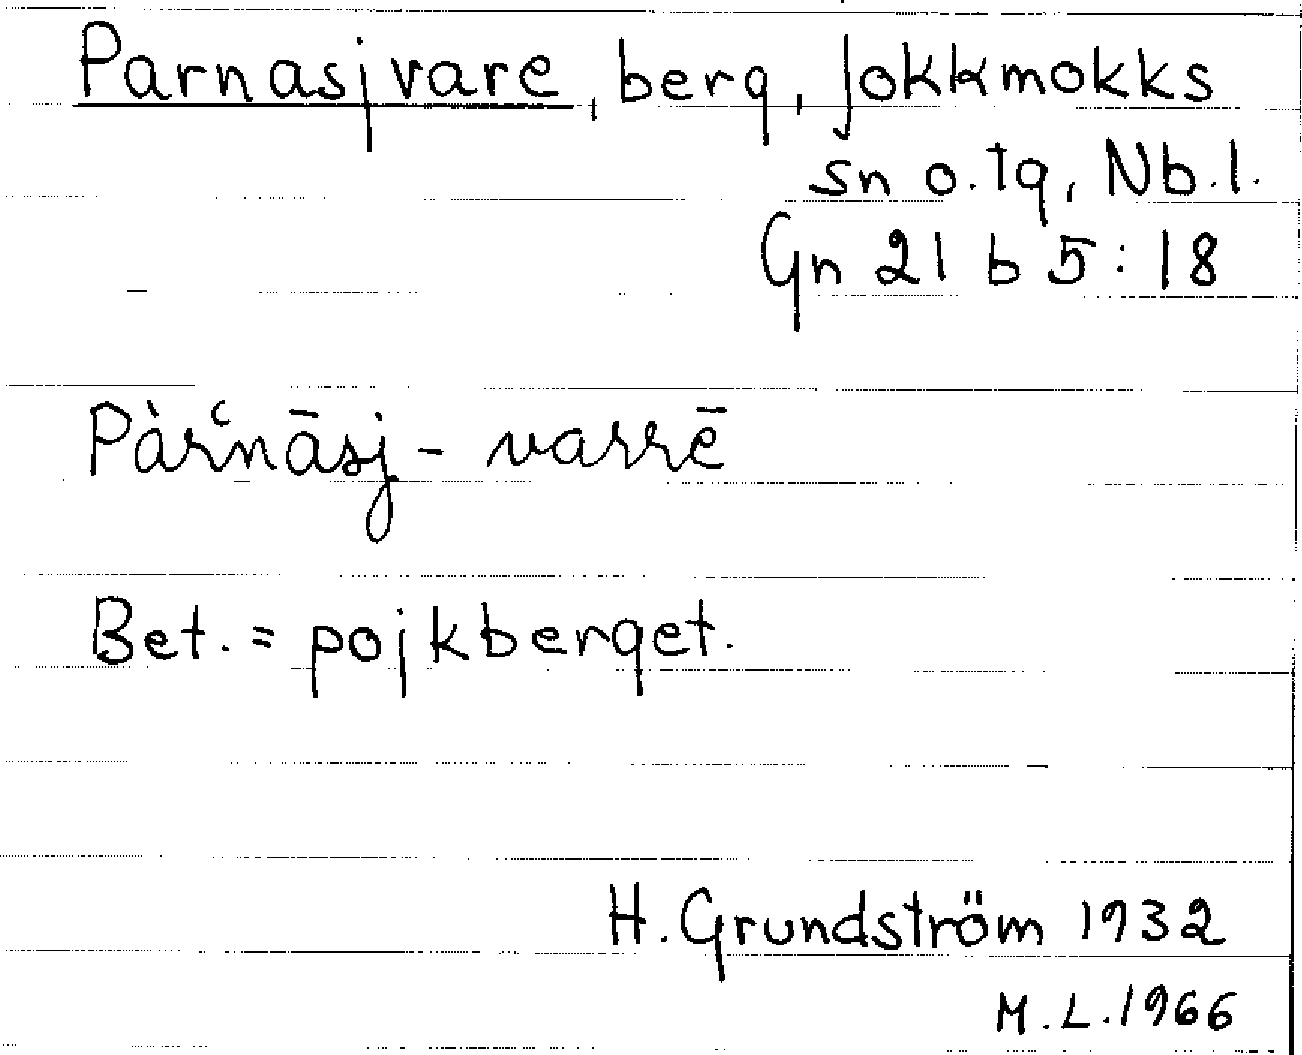 Parnasjvare, berg, Jokkmokks
sn o. tg, Nb. l.
Gn 21 b 5:18
Pàrʿnāsj-varrē
Bet. = pojkberget.
H. Grundström 1932
M.L. 1966